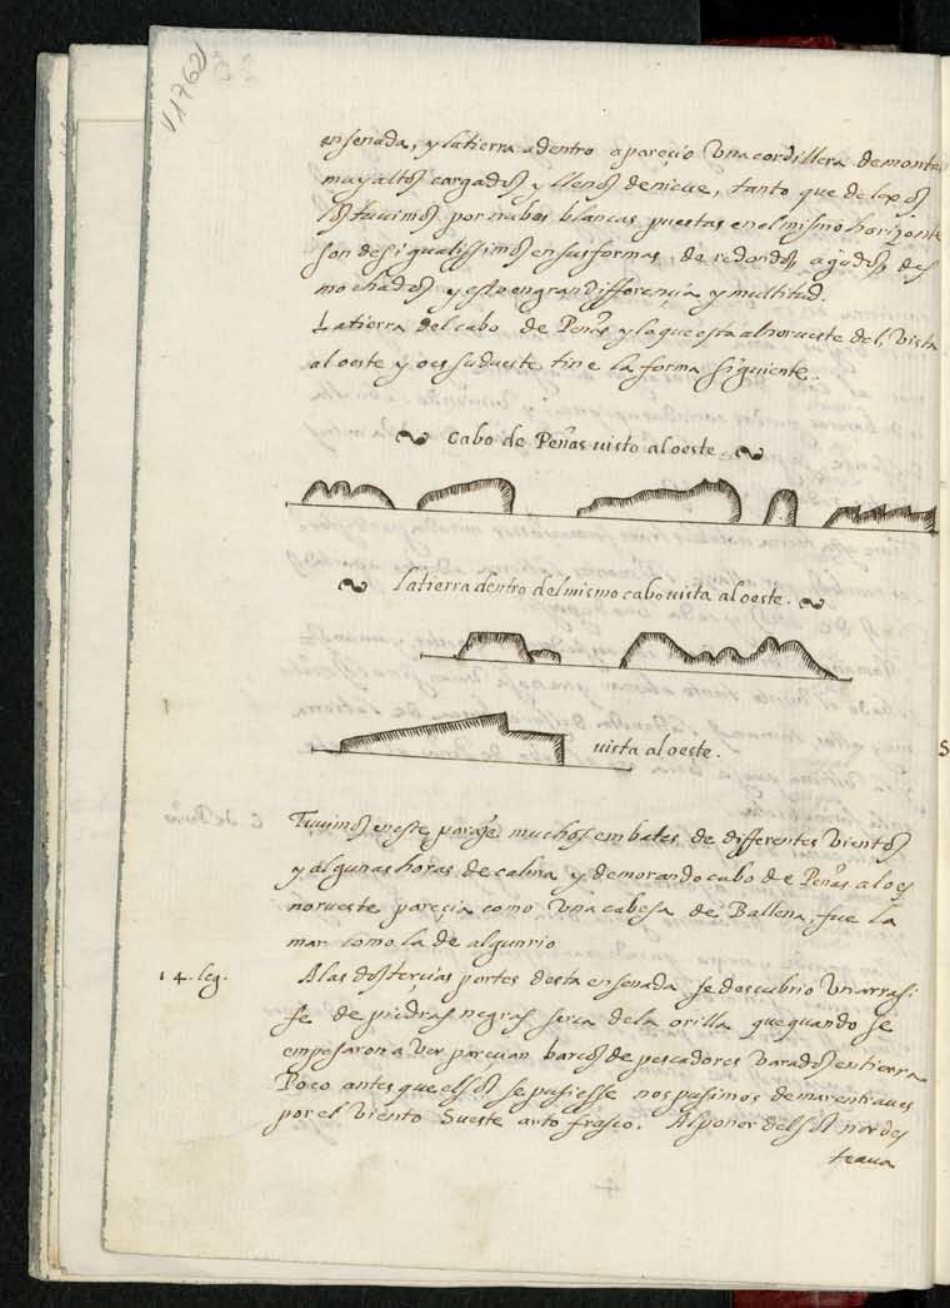 V1762
ensenada, y latierra adentro apareçio Una cordillera demontes
muy altos cargados y llenos denieue, tanto que de lexos
los tuuimos por nubes blancas puestas en el mismo horizonte
son desigualissimos en sus formas, de redondos, agudos, des
mochados y esto en gran differençia y multitud.
Latierra del cabo de Peñas y la que esta al norueste del, Vista
al oeste y oessudueste tine la forma siguiente.
Cabo de Peñas visto al oeste.
la tierra dentro del mismo cabo uista al oeste.
uista al oeste.
Tuuimos en este paraje muchos embates de differentes Vientos
y algunas horas de calma y demorando cabo de Peñas al oes
norueste pareçia como Una cabesa de Ballena, fue la
mar como la de algun rio
14. leg.
A las dos terçias partes desta ensenada se descubrio Un arresi
fe de piedras negras serca de la orilla que quando se
empesaron a Ver pareçian barcos de pescadores Varados en tierra
Poco antes que el sol se pusiesse nos pusimos de mar en traues
por el Viento Sueste arto fresco. Al poner del sol nordes
teaua